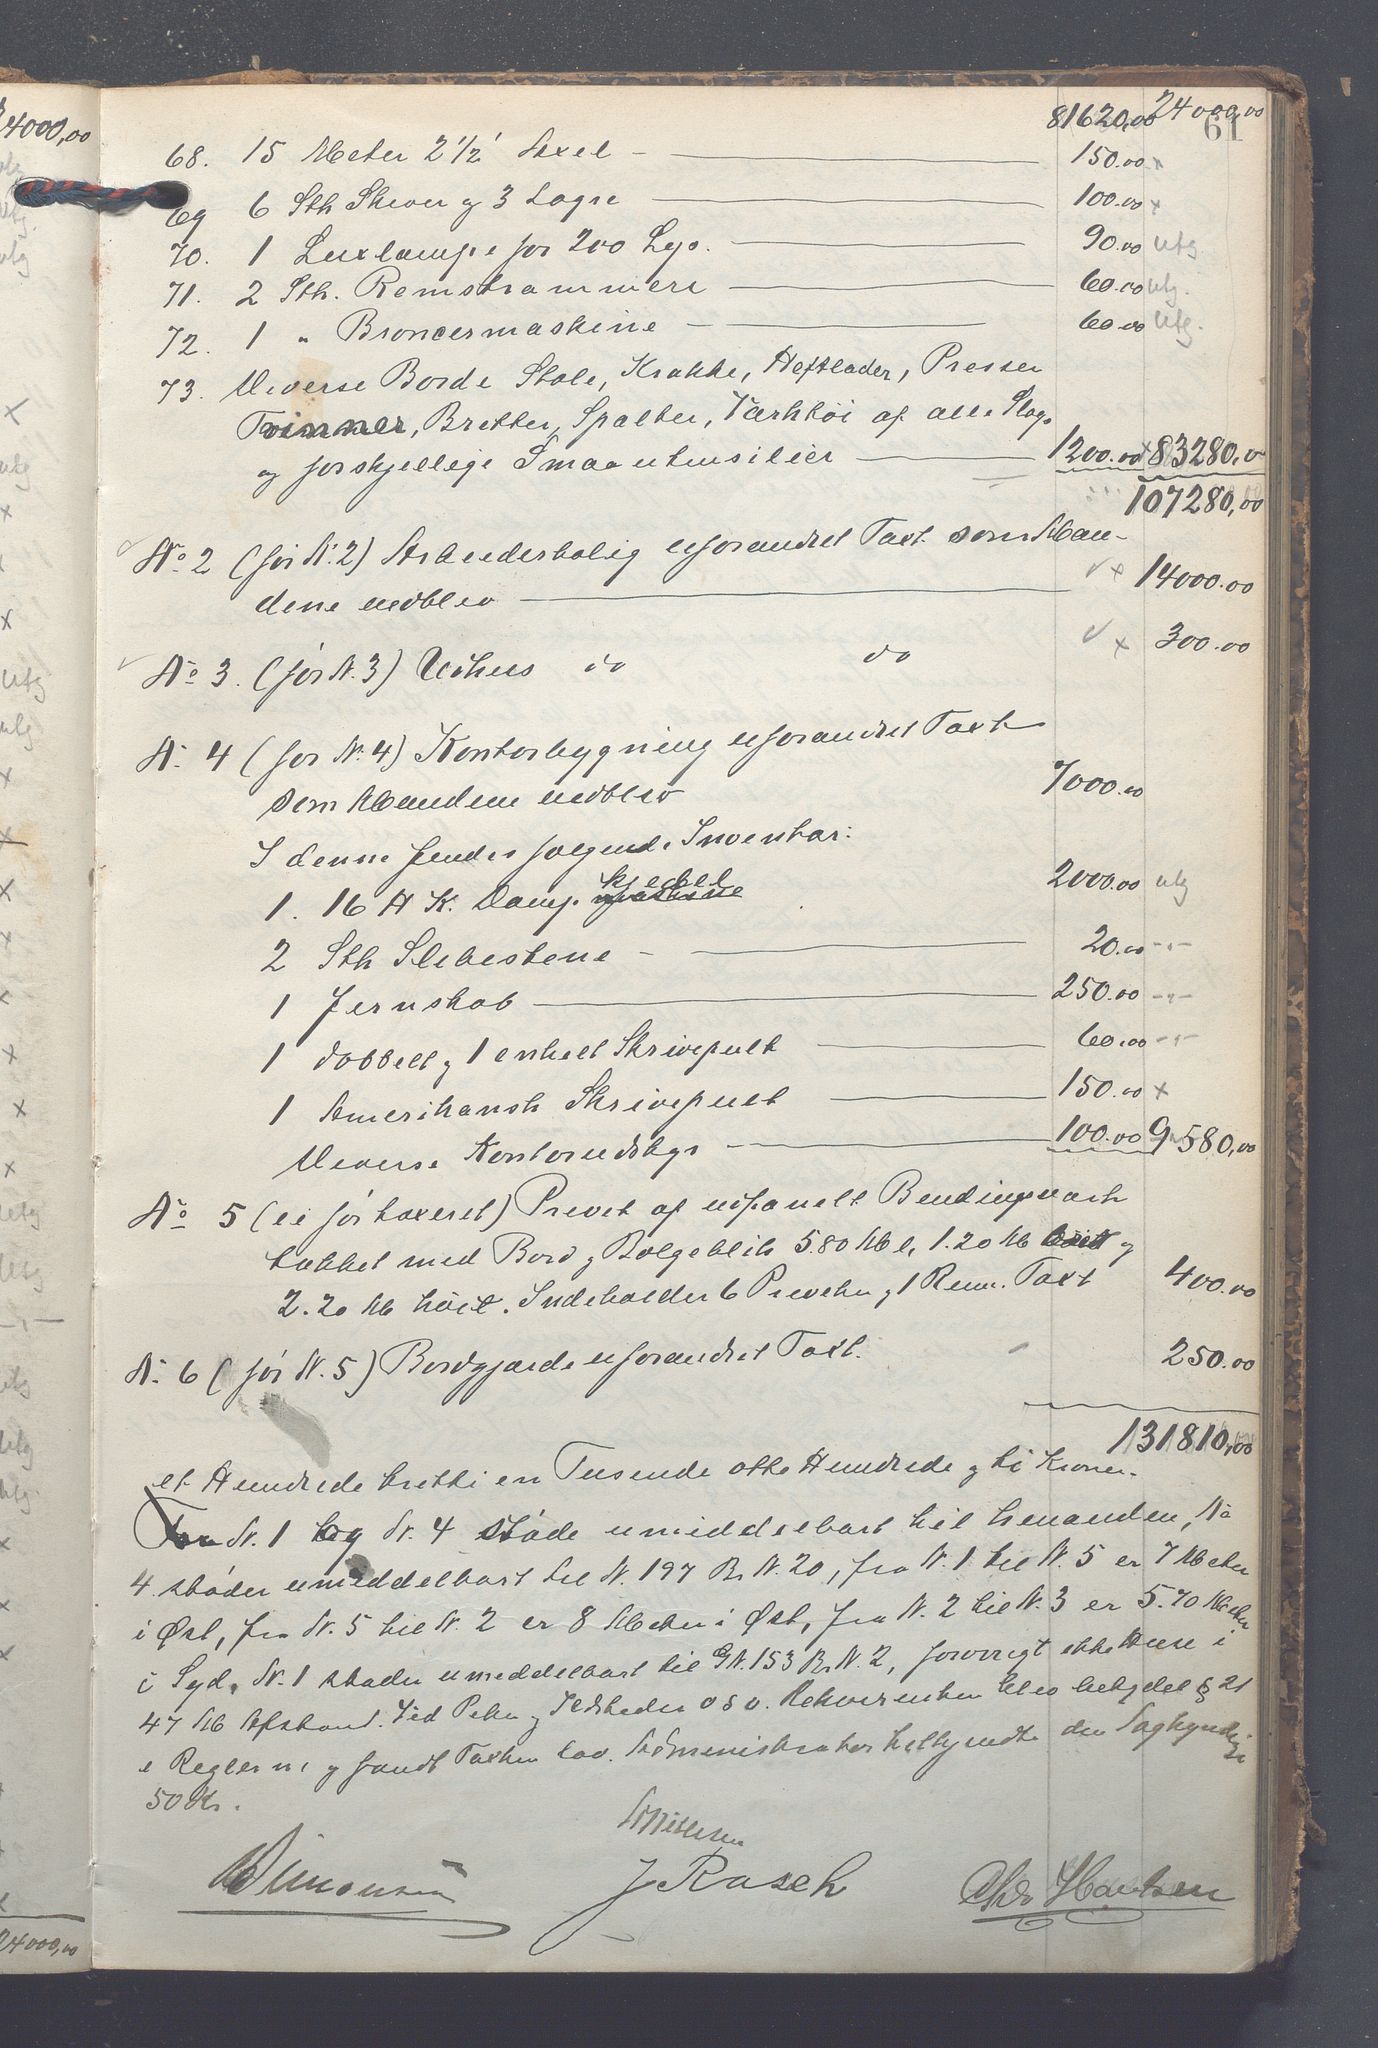 81620,00 24000,00
61
68. 15 Meter 2 1/2" Axel — 150.00 x
69 6 Stk Skiver og 3 Lagre — 100.00 x
70. 1 Luxlampe for 200 Lys. — 90.00 utg
71. 2 Stk. Remstrammere — 60.00 utg.
72. 1 " Broncermaskine — 60.00 utg.
73. Diverse Borde Stole, Krakke, Heftlader, Presser
Tvinner, Bretter, Spalter, Værktøi af alle Slags
og forskjellige Smaautensilier — 1200.00 x 83280,00
107280,00
No 2 (før N. 2) Arbeiderbolig uforandret Taxt som Man-
dene vedblev — x 14000.00
No 3. (før N. 3) Udhus do do x 300.00
N. 4 (før N. 4) Kontorbygning uforandret Taxt
som Mandene vedblev 7000.00
I denne findes følgende Inventar:
1. 16 H K. Damp kjedel 2000.00 utg
2 Stk Slibestene — 20.00 -"-
1 Jernskab — 250.00 -"-
1 dobbelt og 1 enkelt Skrivepult — 60.00 -"-
1 Amerikansk Skrivepult — 150.00 x
Diverse Kontorudstyr — 100.00 9580,00
No 5 (ei før taxeret) Privet af upanelt Bindingsværk
tækket med Bord og Bølgeblik 5.80 M l, 1.20 M og
2.20 M høit. Indeholder 6 Priveter og 1 Rum. Taxt 400.00
N. 6 (før N. 5) Bordgjærde uforandret Taxt. 250.00
131810,00
et Hundrede tretti en Tusende otte Hundrede og ti Kroner.
N. 1 og N. 4 støde umiddelbart til hinanden, No
4 støder umiddelbart til N. 197 Br N. 20, fra N. 1 til N. 5 er 7 Meter
i Øst, fra N. 5 til N. 2 er 8 Meter i Øst, fra N. 2 til N. 3 er 5.70 Meter
i Syd, N. 1 støder umiddelbart til G N. 153 Br. N. 2, forøvrigt ikke Huse i
47 M Afstand. Ved Piber og Ildsteder o s v. Rekvirenten blev betydet § 21
i Reglerne og fandt Taxten lav. Administrator tilkjendte de Sagkyndige
50 Kr.
J Rasch